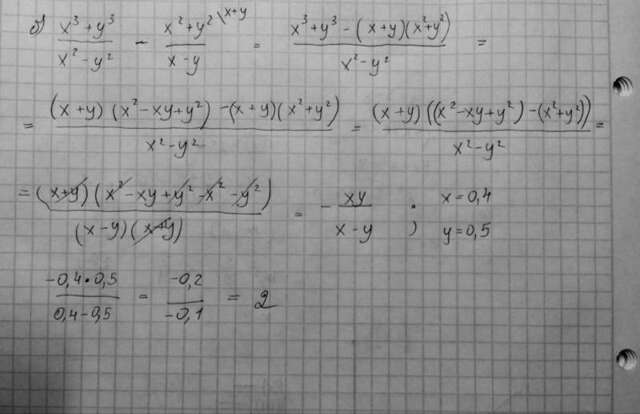 б) (x³+y³)/(x²-y²) - (x²+y²)/(x-y) \x+y = (x³+y³-(x+y)(x²+y²))/(x²-y²) =
= ((x+y)(x²-xy+y²)-(x+y)(x²+y²))/(x²-y²) = ((x+y)((x²-xy+y²)-(x²+y²)))/(x²-y²) =
= ((x+y)(x²-xy+y²-x²-y²))/((x-y)(x+y)) = - xy/(x-y) ; x=0,4
y=0,5
(-0,4·0,5)/(0,4-0,5) = (-0,2)/(-0,1) = 2